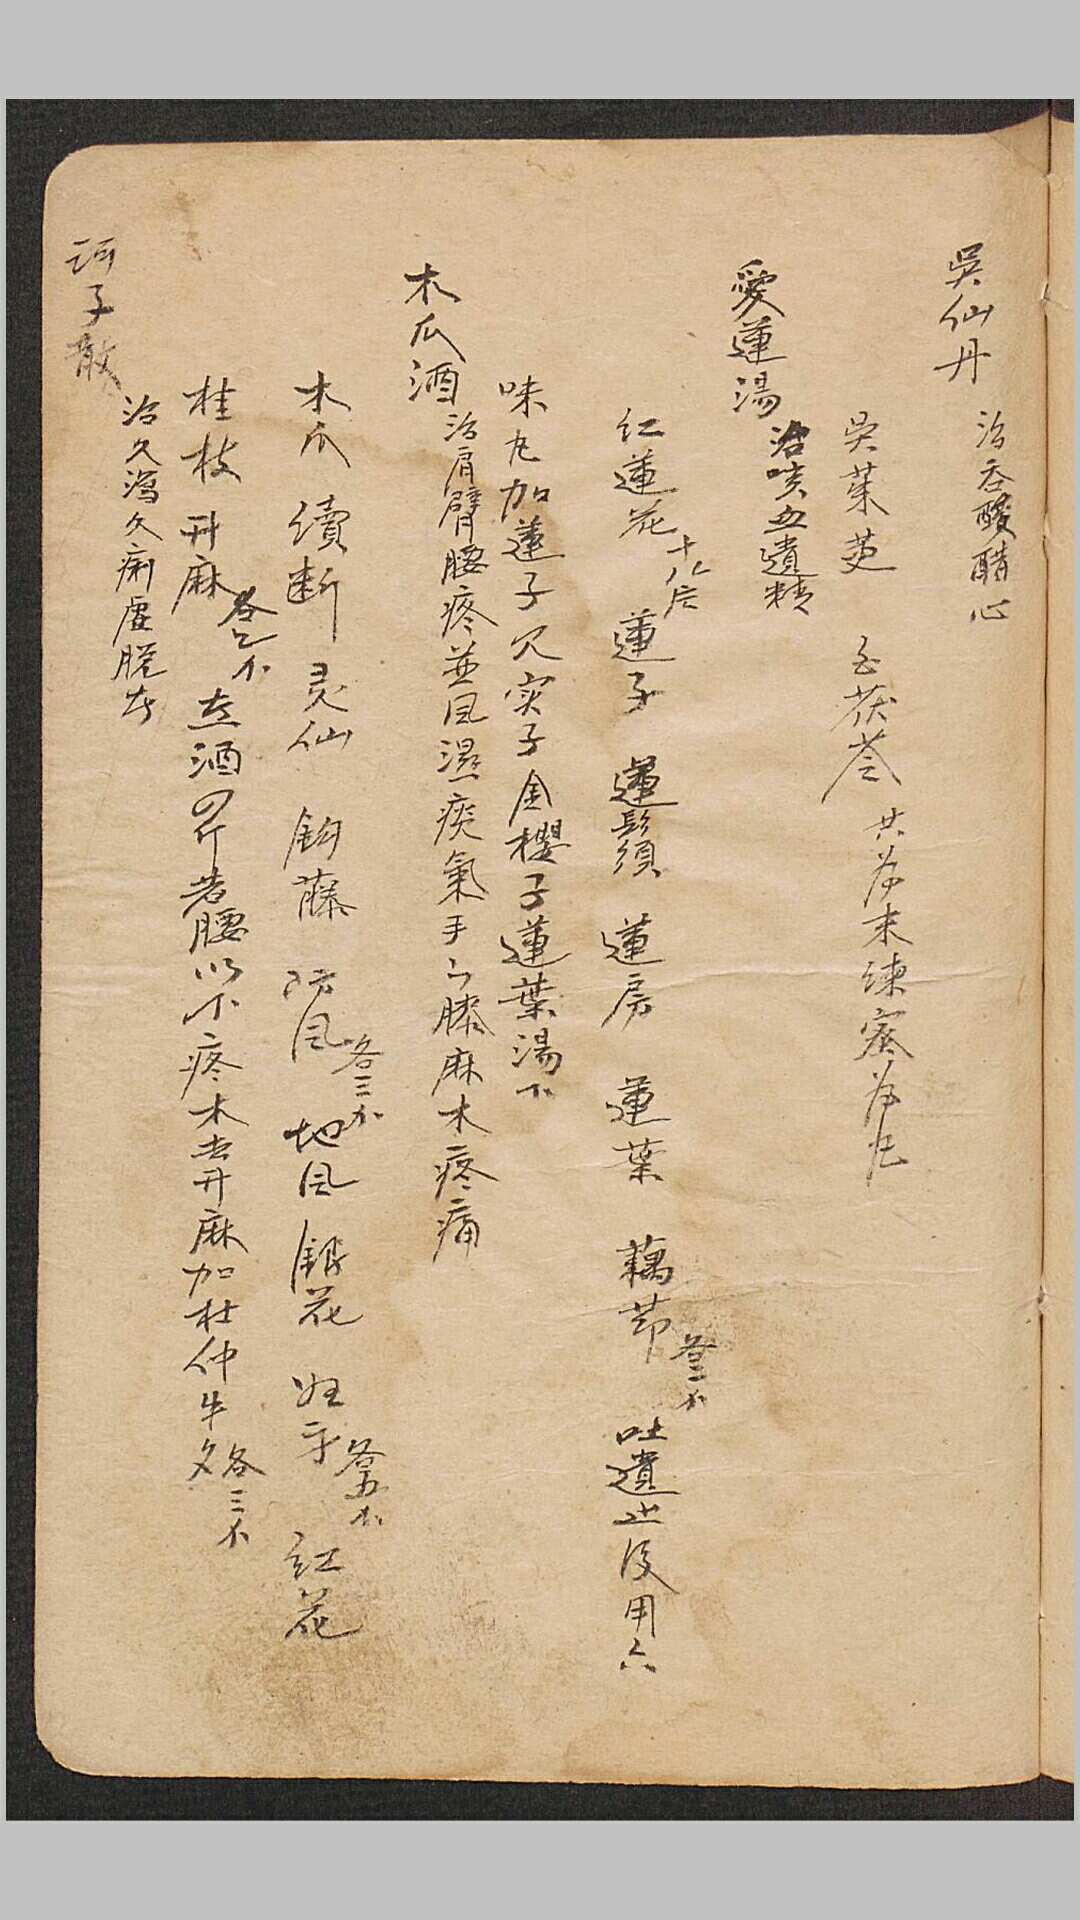 吳仙丹 治吞酸醋心
吳茱萸 白茯苓 共为末煉蜜为丸
愛蓮湯 治咳血遺精
紅蓮花十八片 蓮子 蓮鬚 蓮房 蓮葉 藕节各三 吐遺止後用六
味丸加蓮子欠实子金櫻子蓮葉湯下
木瓜酒 治肩臂腰疼並风濕痰氣手足膝麻木疼痛
木瓜 續断 灵仙 鈎藤 防风各三 地风 銀花 各五 红花
桂枝 升麻各 酒四斤若腰以下疼木去升麻加杜仲牛夕各三
訶子散 治久瀉久痢虛脱者